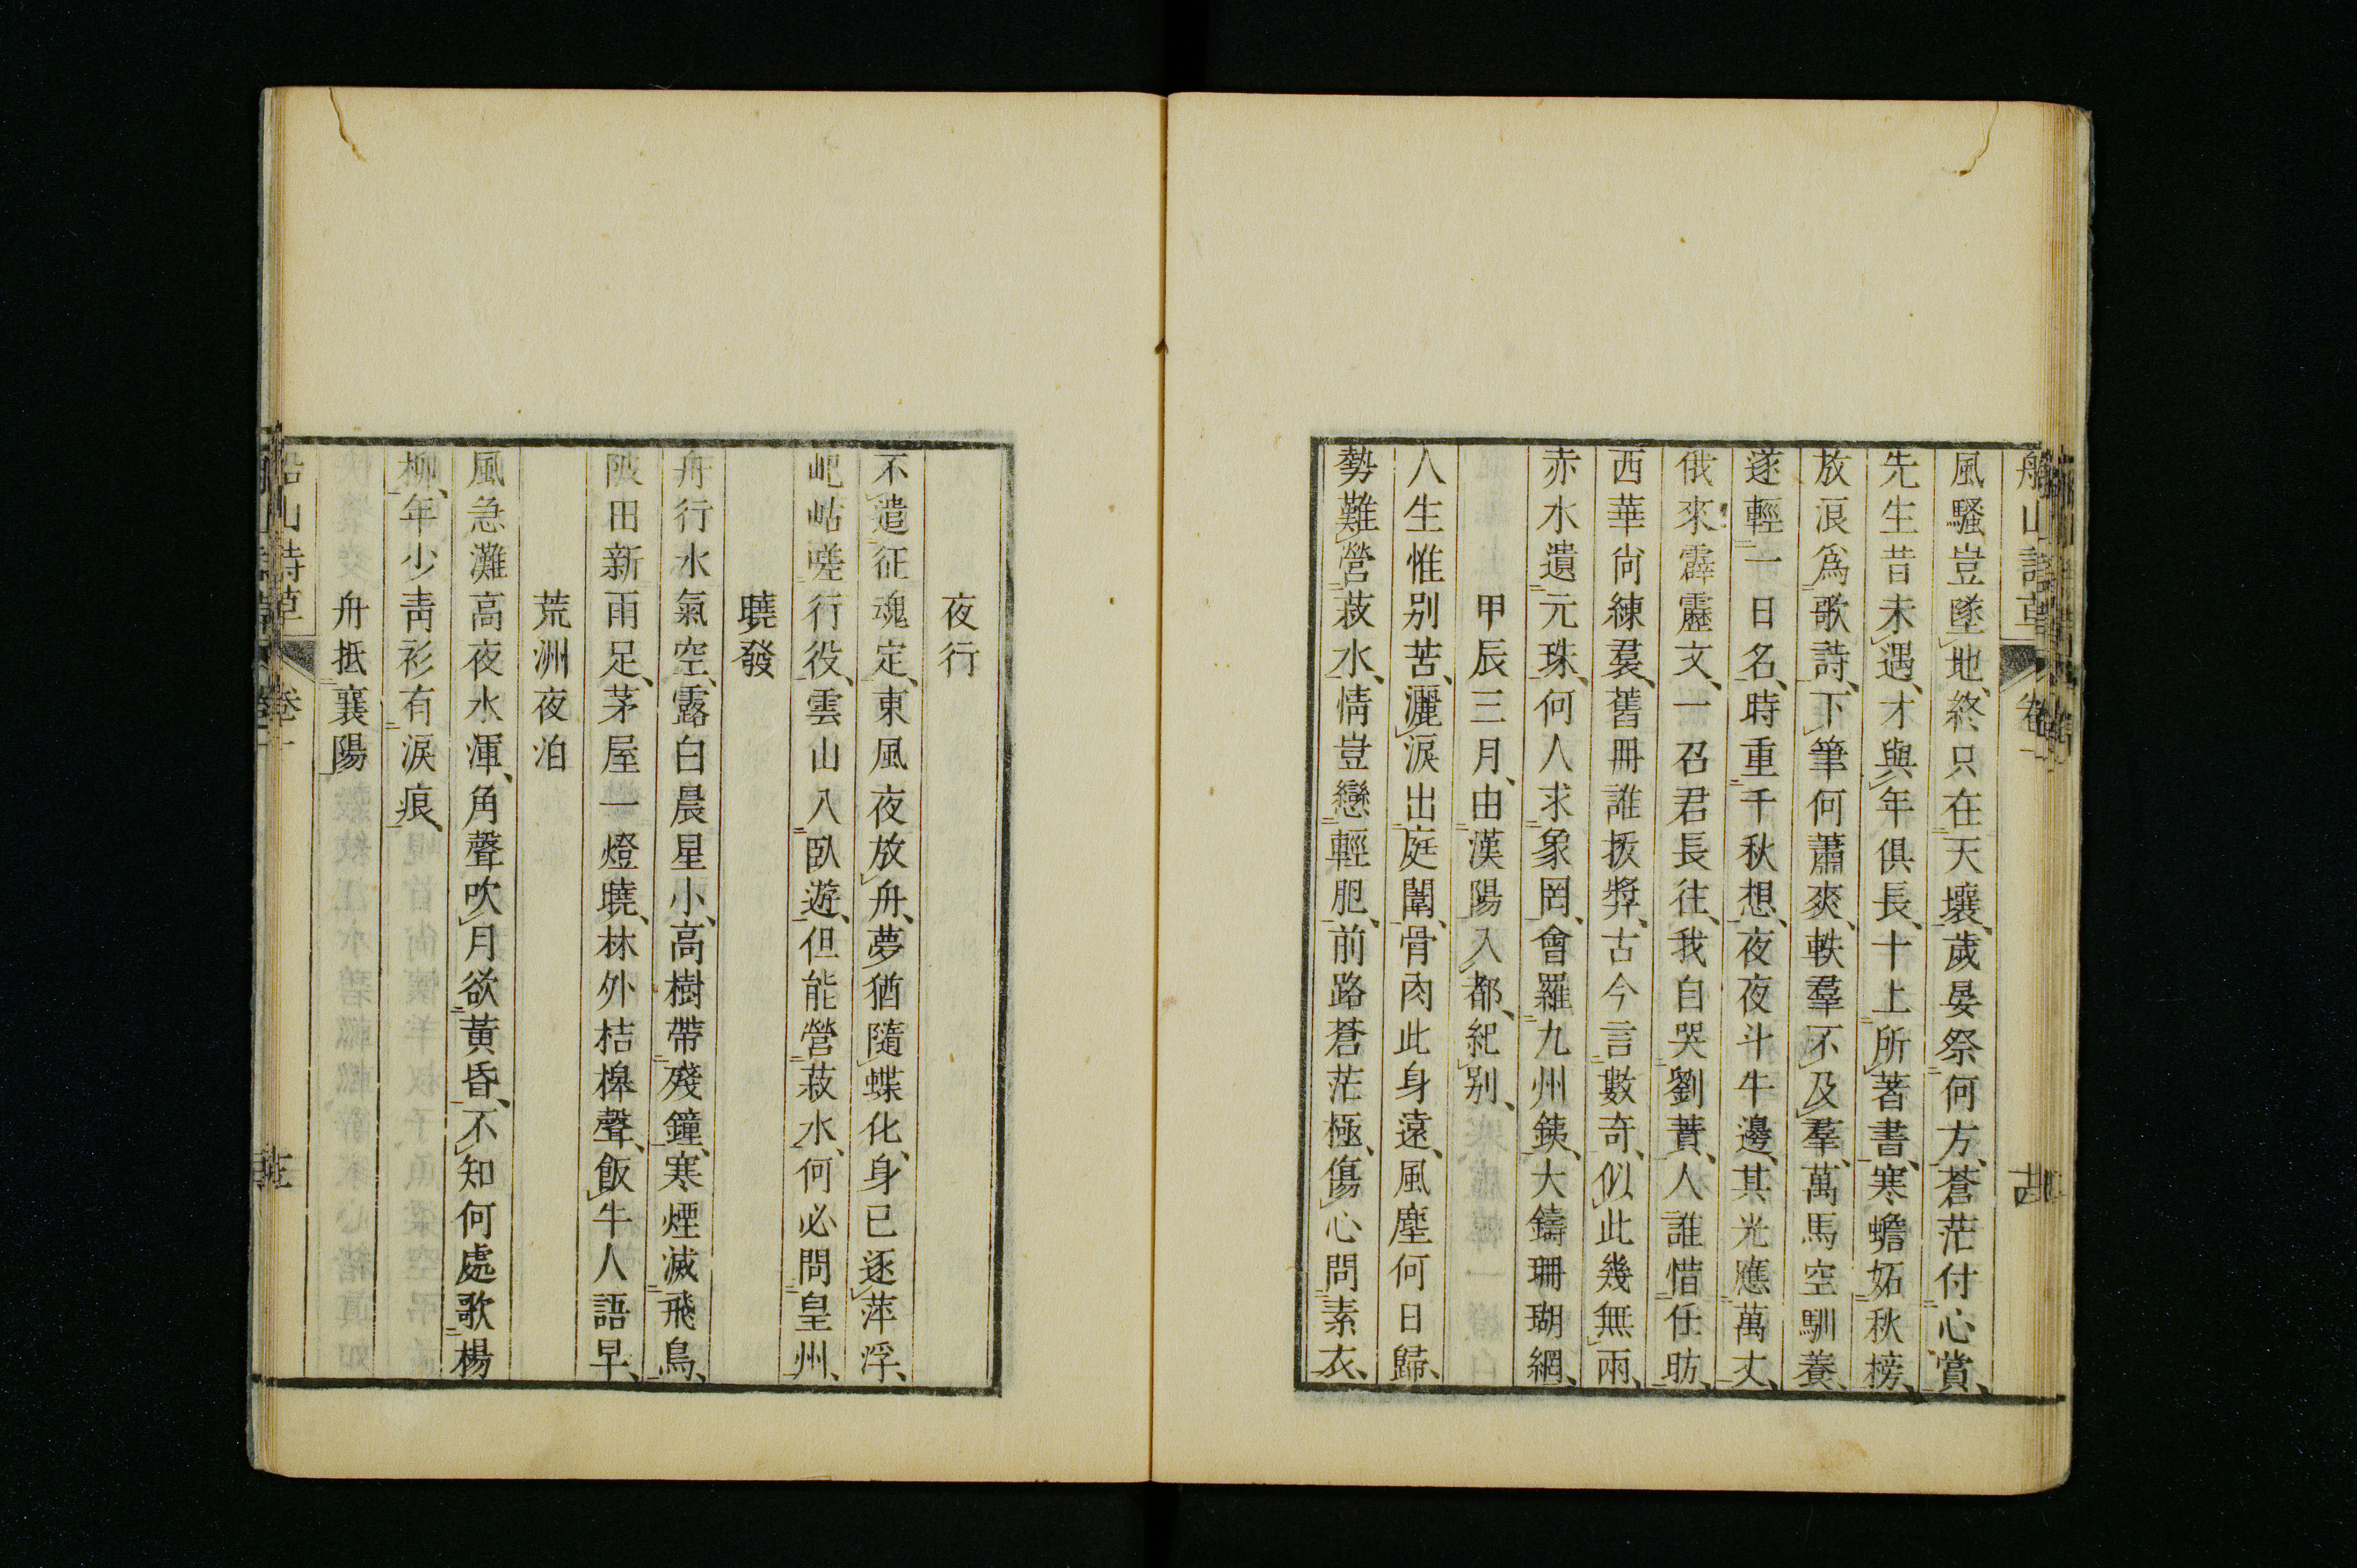 船山詩草 卷一 十四
風騷豈墜地、終只在天壤、歲晏祭何方、蒼茫付心賞、
先生昔未遇、才與年俱長、十上所著書、寒蟾妬秋榜、
放浪爲歌詩、下筆何蕭爽、軼羣不及羣、萬馬空馴養、
遂輕一日名、時重千秋想、夜夜斗牛邊、其光應萬丈、
俄來霹靂文、一召君長往、我自哭劉蕡、人誰惜任昉、
西華尙練裙、舊冊誰拔弊、古今言數奇、似此幾無兩、
赤水遺元珠、何人求象罔、會羅九州鐵、大鑄珊瑚網、
甲辰三月、由漢陽入都、紀别、
人生惟别苦、灑淚出庭闈、骨肉此身遠、風塵何日歸、
勢難營菽水、情豈戀輕肥、前路蒼茫極、傷心問素衣、
夜行
不遣征魂定、東風夜放舟、夢猶隨蝶化、身已逐萍浮、
屺岵嗟行役、雲山入臥遊、但能營菽水、何必問皇州、
曉發
舟行水氣空、露白晨星小、高樹帶殘鐘、寒煙滅飛鳥、
陂田新雨足、茅屋一燈曉、林外桔槔聲、飯牛人語早、
荒洲夜泊
風急灘高夜水渾、角聲吹月欲黃昏、不知何處歌楊
柳、年少靑衫有淚痕、
舟抵襄陽
船山詩草 卷一